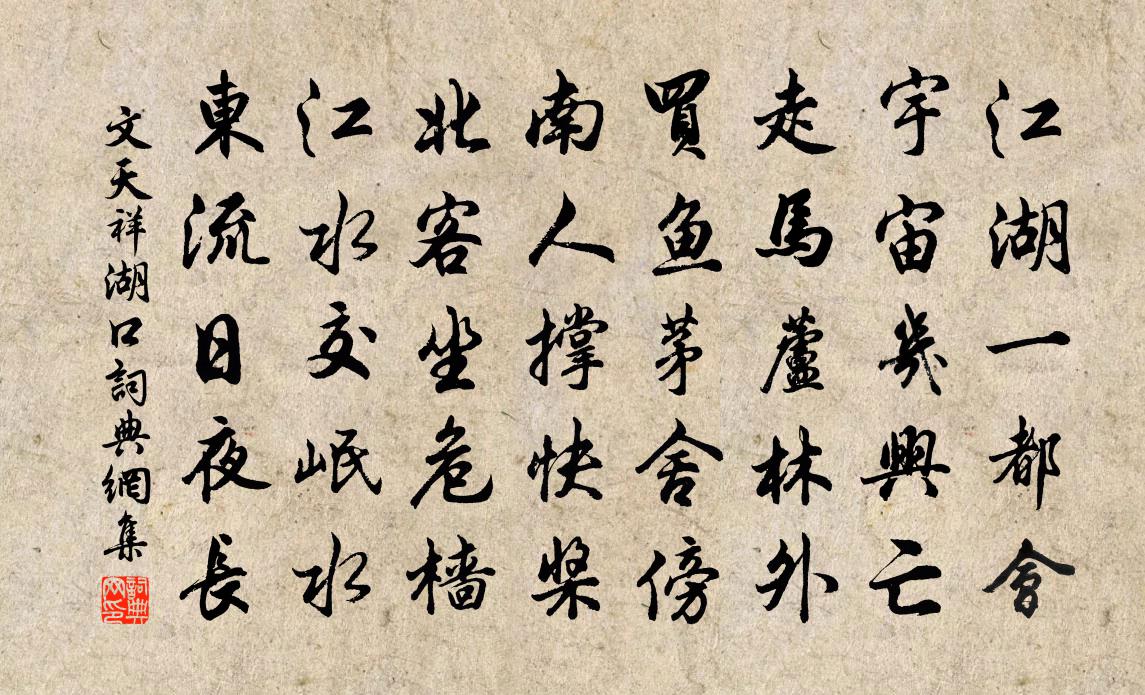 江湖一都會
宇宙幾興亡
走馬蘆林外
買魚茅舍傍
南人撐快槳
北客坐危檣
江水交岷水
東流日夜長
文天祥湖口詞典網集
詞典網印